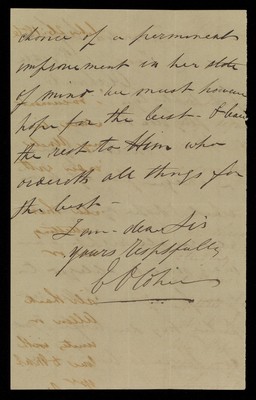 chance of a permanent
improvement in her state
of mind we must however
hope for the best - & leave
the rest to Him who
ordereth all things for
the best -
I am - dear Sir
Yours respctfully